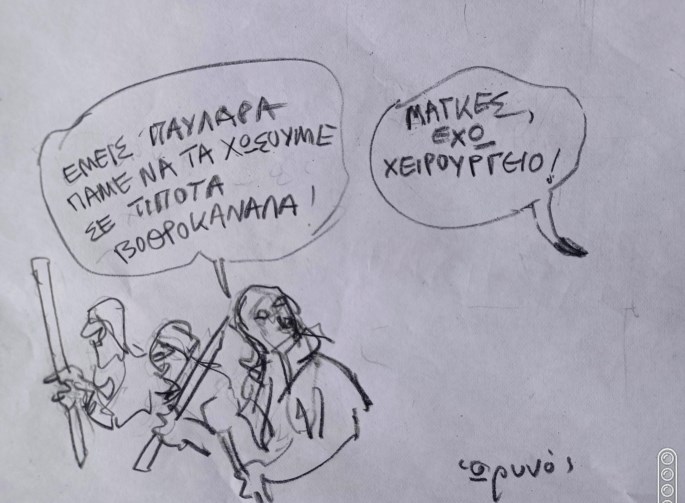 ΕΜΕΙΣ ΠΑΥΛΑΡΑ
ΠΑΜΕ ΝΑ ΤΑ ΧΩΣΟΥΜΕ
ΣΕ ΤΙΠΟΤΑ
ΒΟΘΡΟΚΑΝΑΛΑ!
ΜΑΓΚΕΣ,
ΕΧΩ
ΧΕΙΡΟΥΡΓΕΙΟ!